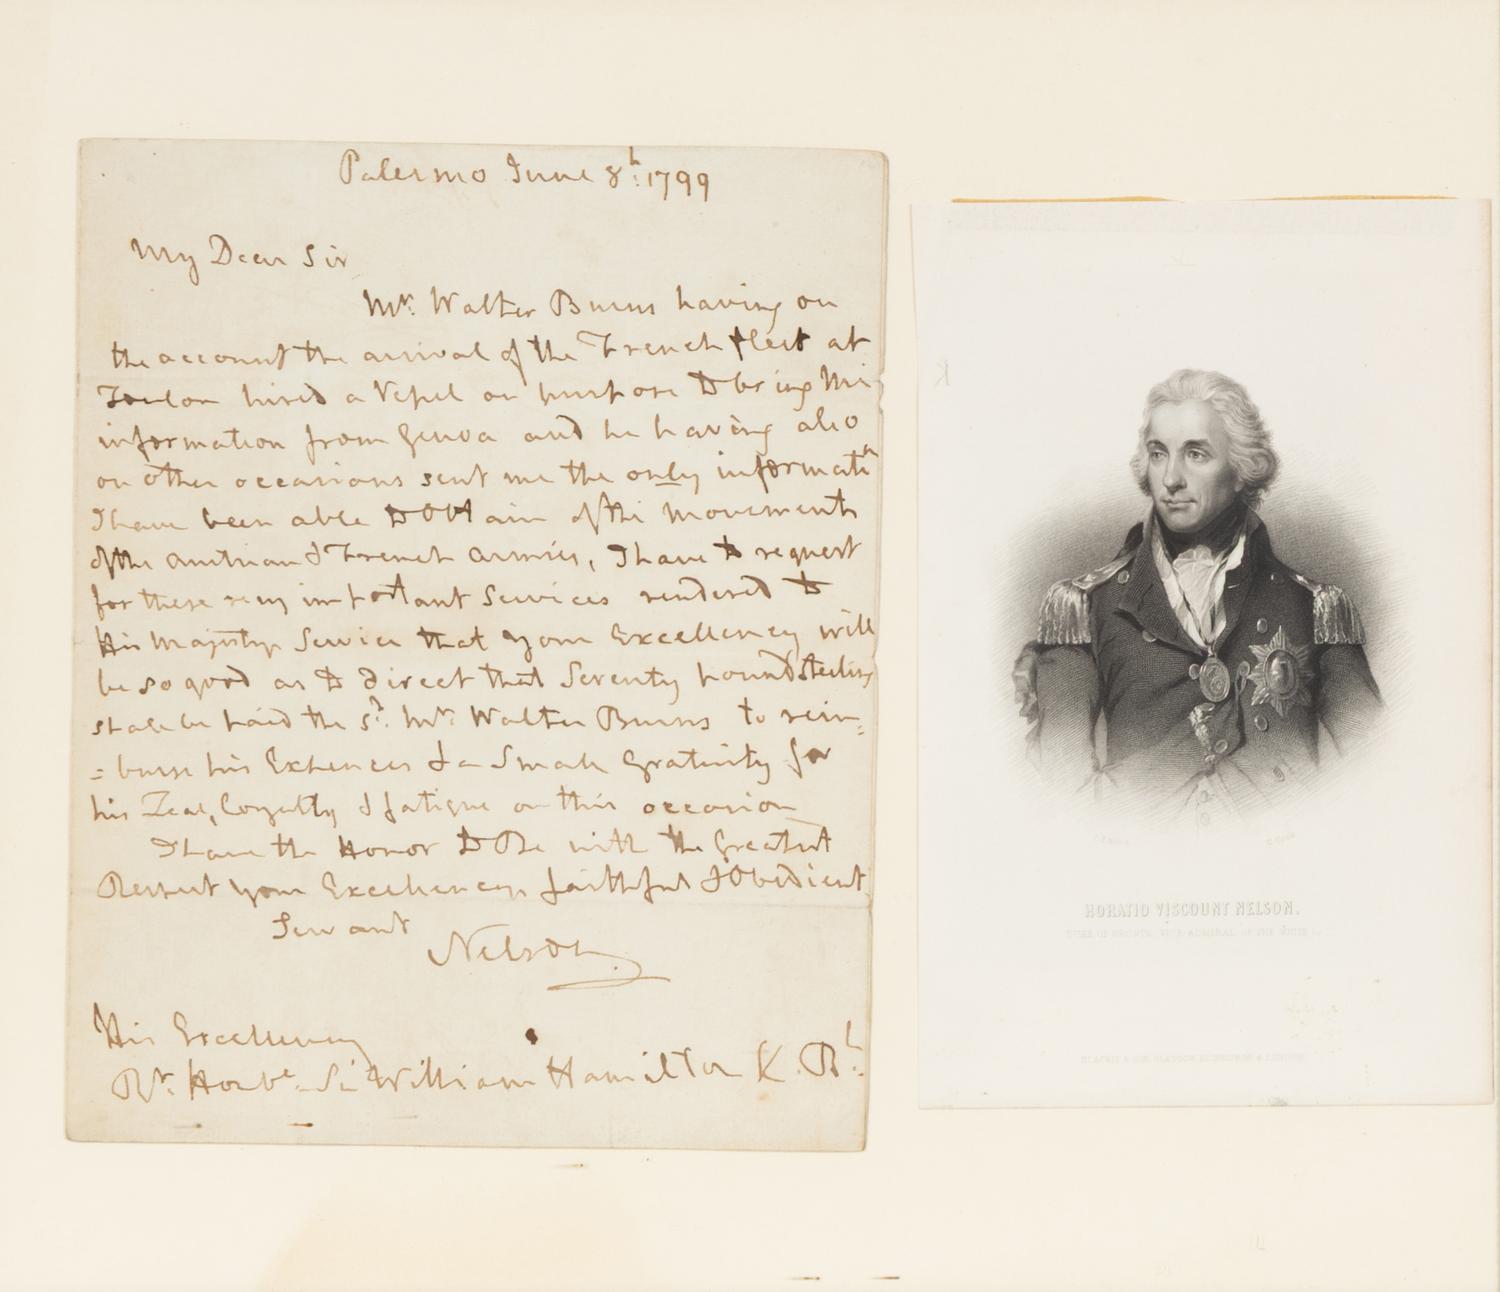 Palermo June 8th: 1799
My Dear Sir
Mr: Walter Burns having on
the account the arrival of the French fleet at
Toulon hired a Vessel on purpose to bring Me
information from Genoa and he having also
on other occasions sent me the only informatin
I have been able to obtain of the Movements
of the Austrian & French Armies, I have to request
for these very important Services rendered to
His Majestys Service that your Excellency will
be so good as to direct that Seventy pounds sterling
shall be paid the sd. Mr: Walter Burns to reim=
=burse his Expences & a Small Gratuity for
his Zeal, Loyalty & fatigue on this occasion
I have the Honor to Be with the Greatest
Respect your Excellencys faithful & Obedient
Servant
Nelson
His Excellency
Rt. Honbe. Sir William Hamilton K. Bh:
HORATIO VISCOUNT NELSON.
DUKE OF BRONTE, VICE-ADMIRAL OF THE WHITE &c.
BLACKIE & SON, GLASGOW, EDINBURGH & LONDON